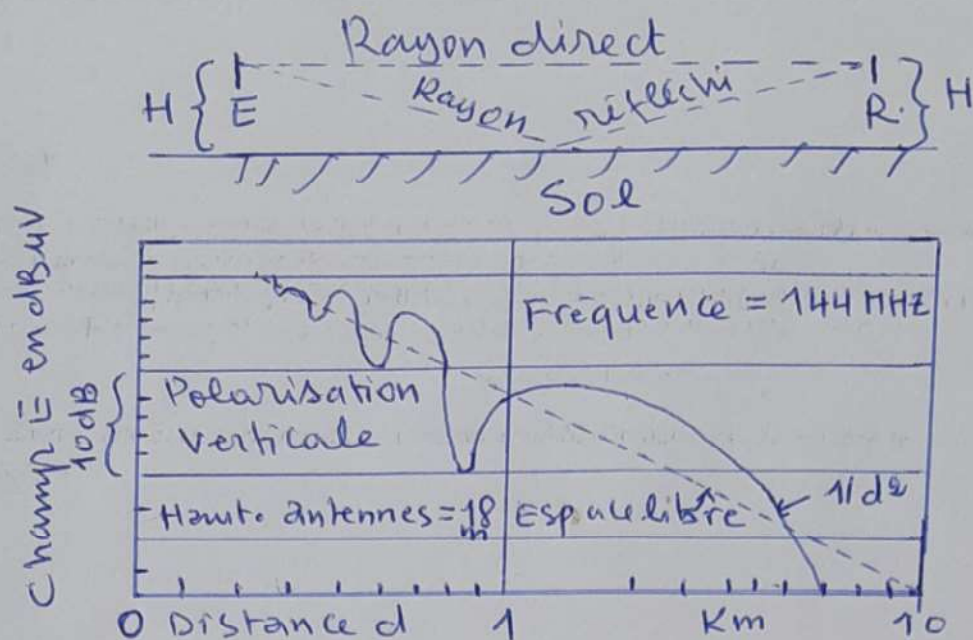 Rayon direct
H E Rayon réflechi R. H
Sol
Champ E en dBµV
10dB
Fréquence = 144 MHZ
Polarisation
verticale
1/d²
Haut. antennes = 18 m Espace libre
0 Distance d 1 Km 10